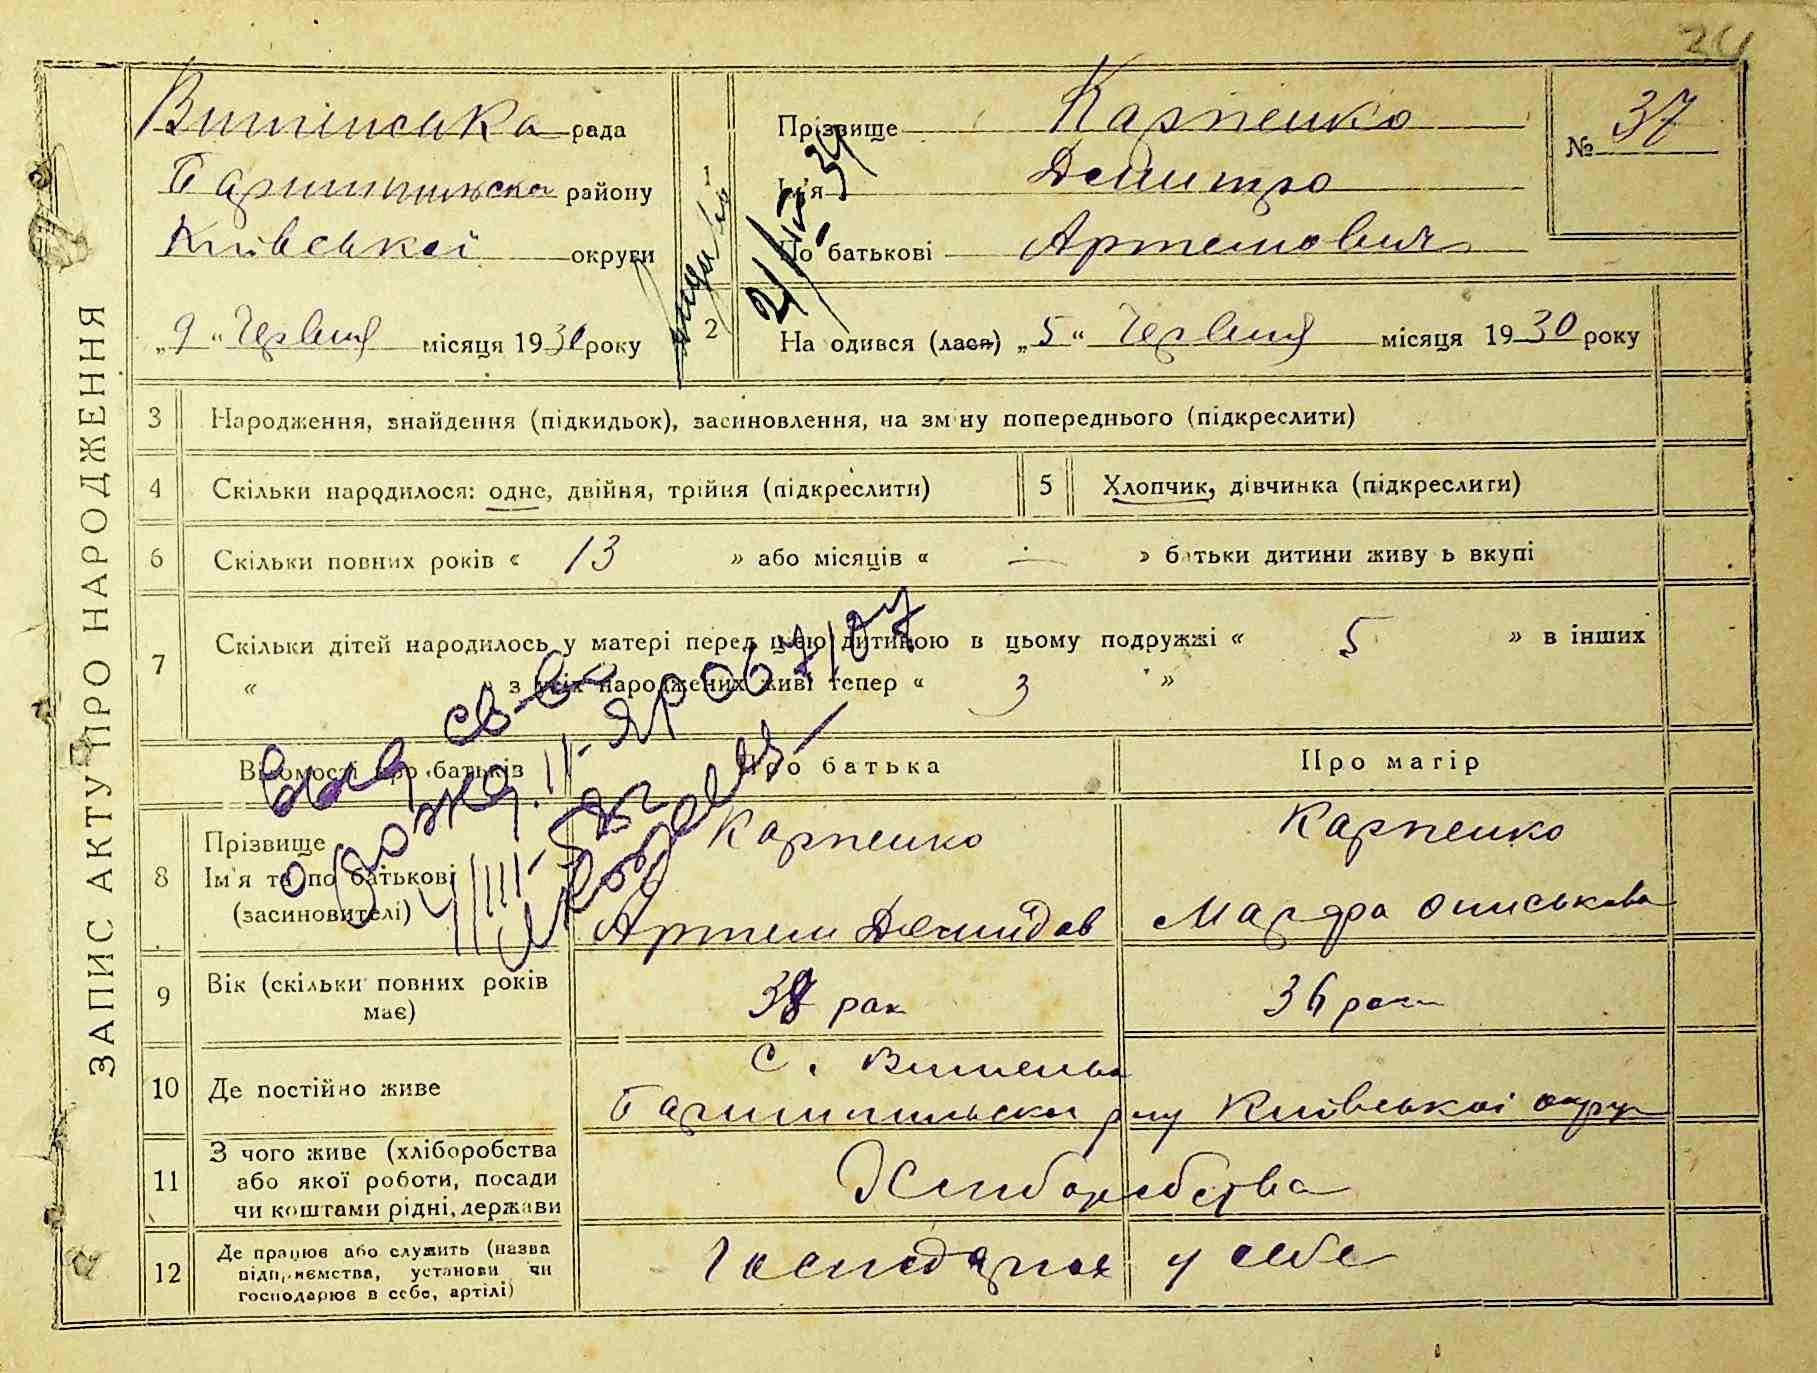 34
ЗАПИС АКТУ ПРО НАРОДЖЕННЯ
рада
району
Київської округи
„9“ Червня місяця 1930 року
1
Прізвище Карпенко
Ім'я Дмитро
По батькові Артемович
№ 37
2
На одився (лася) „5“ Червня місяця 1930 року
3 Народження, знайдення (підкидьок), засиновлення, на зміну попереднього (підкреслити)
4 Скільки народилося: одне, двійня, трійня (підкреслити)
5 Хлопчик, дівчинка (підкреслити)
6 Скільки повних років « 13 » або місяців « — » батьки дитини живу ь вкупі
7 Скільки дітей народилось у матері перед цією дитиною в цьому подружжі « 5 » в інших
« » з усіх народжених живі тепер « 3 »
Відомості про батьків
Про батька
Про матір
8 Прізвище
Ім'я та по батькові
(засиновителі)
Карпенко
Артем Демидов
Карпенко
Марфа
9 Вік (скільки повних років
має)
38 рок
36 роки
10 Де постійно живе
С.
Київської округ
11 З чого живе (хліборобства
або якої роботи, посади
чи коштами рідні, держави
Хліборобства
12 Де працює або служить (назва
підприємства, установи чи
господарює в себе, артілі)
у себе